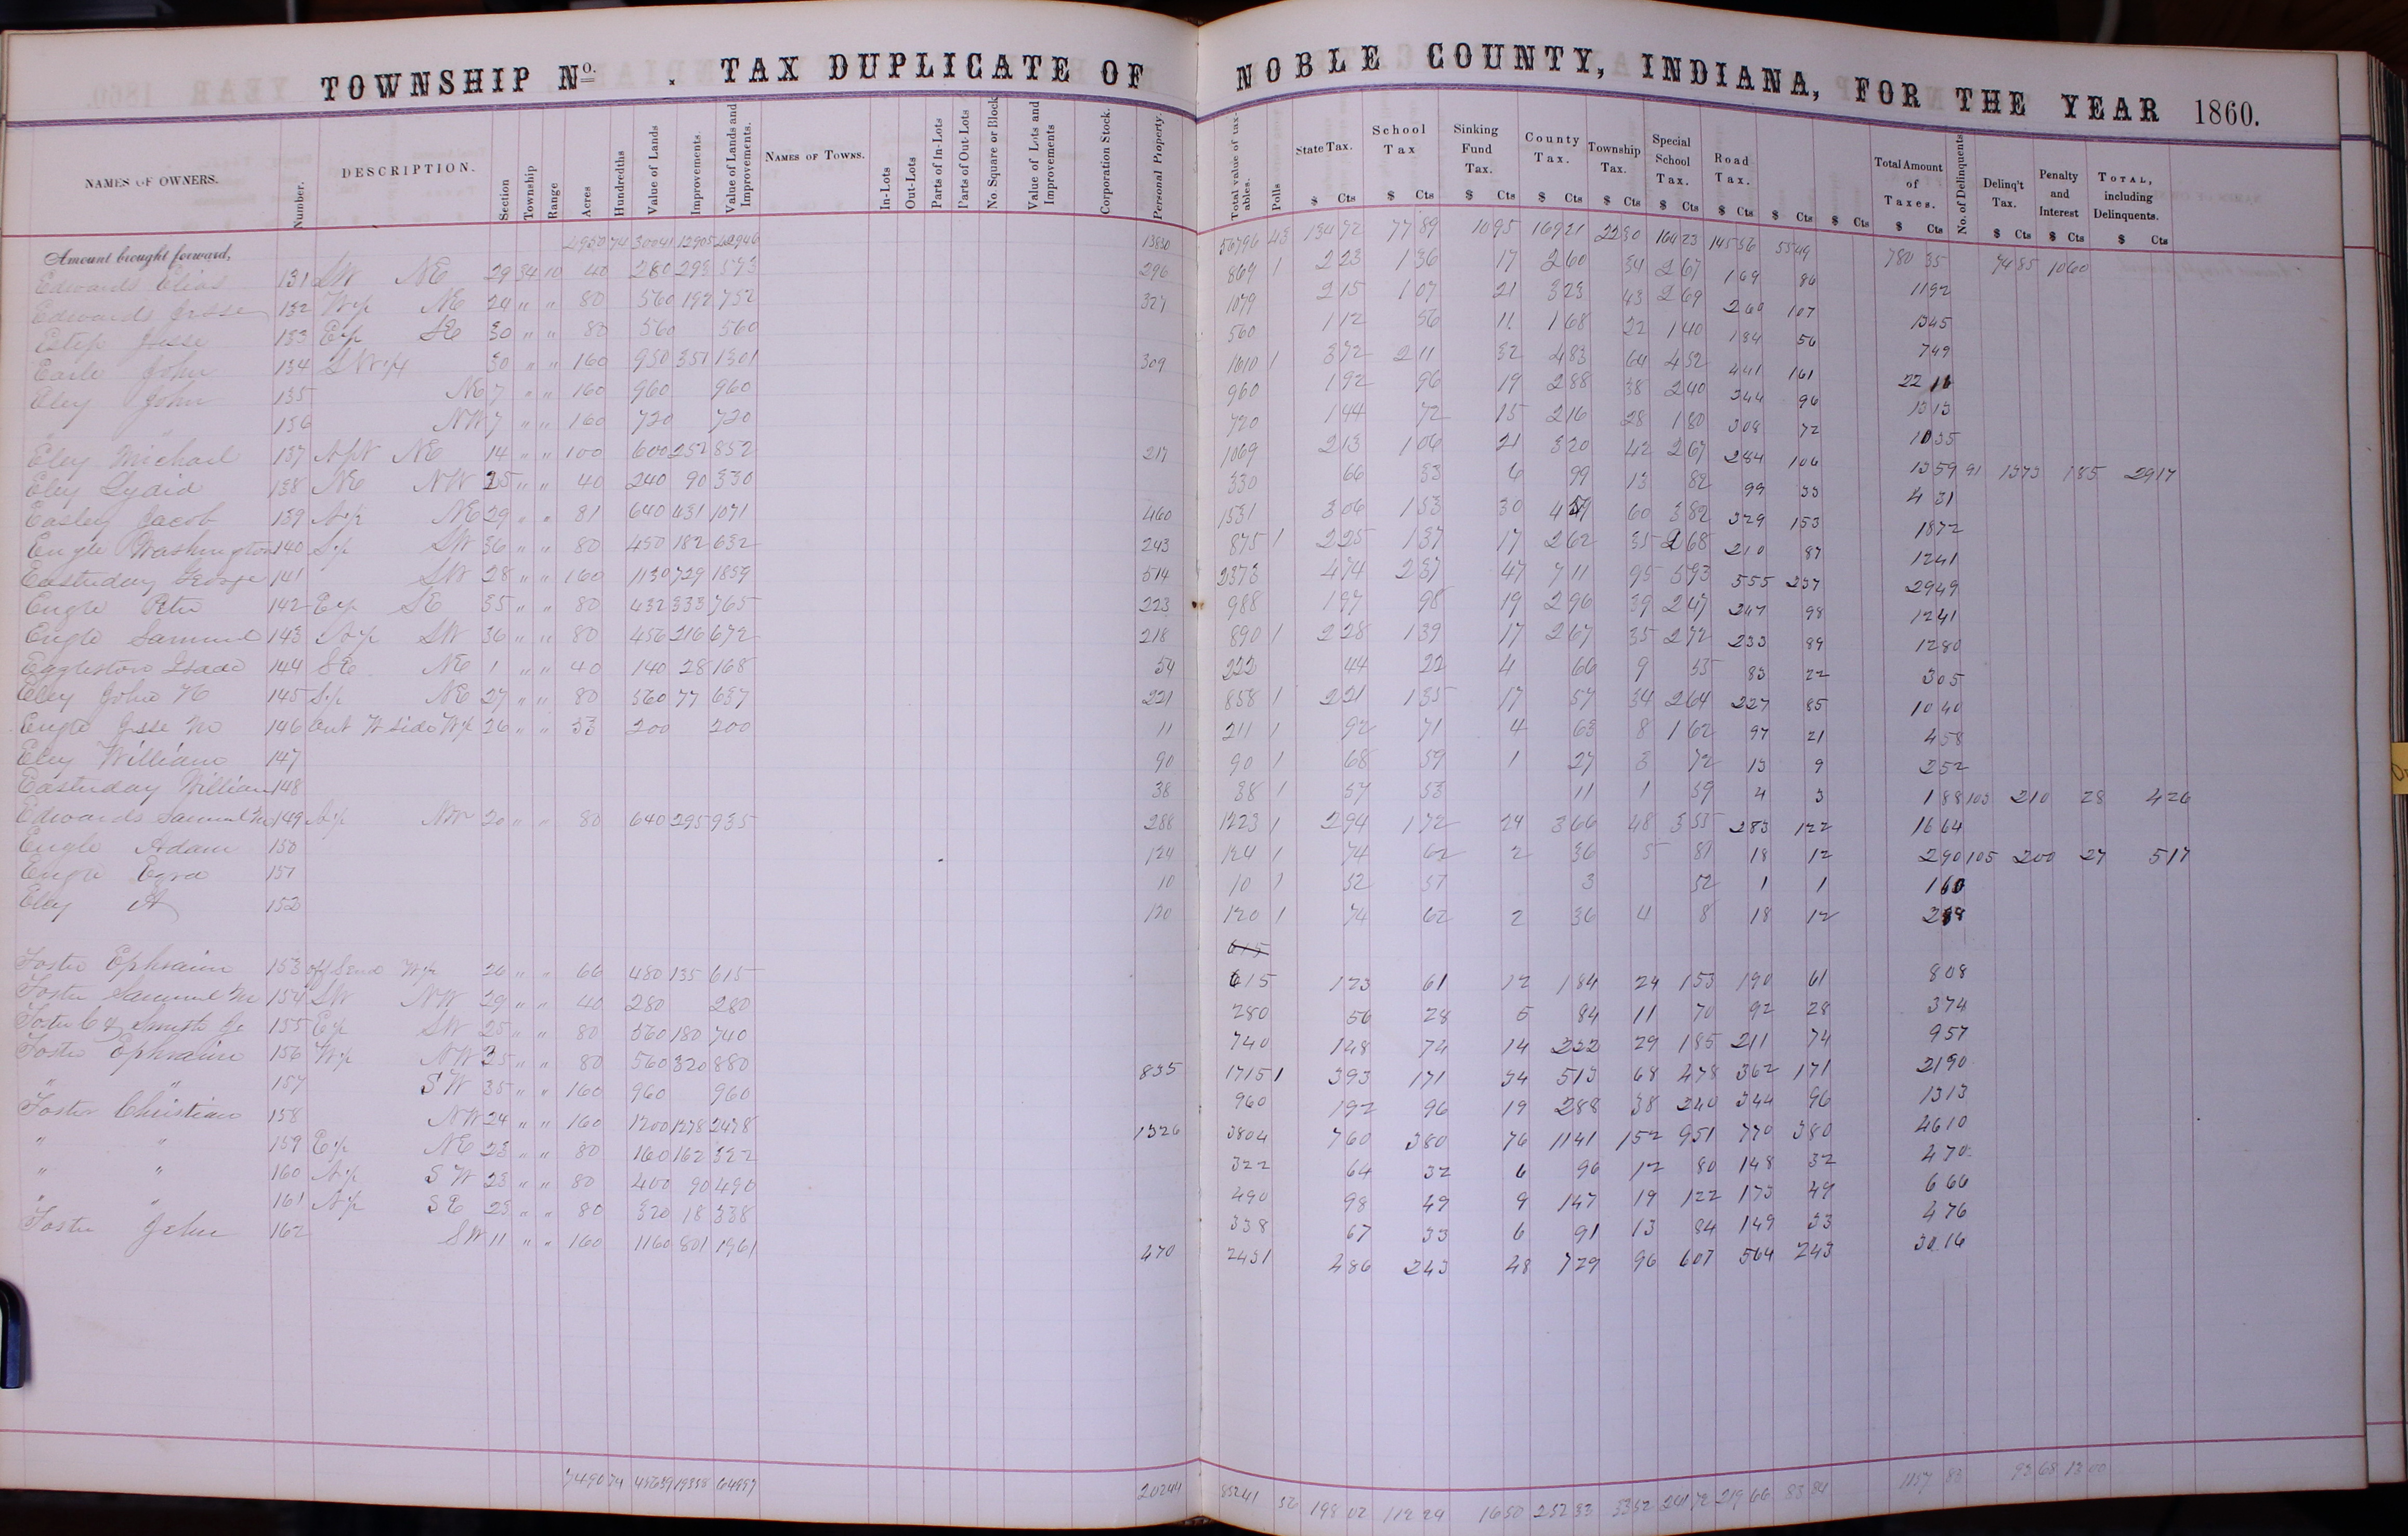 TOWNSHIP No. . TAX DUPLICATE OF NOBLE COUNTY, INDIANA, FOR THE YEAR 1860.
NAMES OF OWNERS. Number. DESCRIPTION. Section Township Range Acres Hundredths Value of Lands Improvements. Value of Lands and Improvements. NAMES OF TOWNS. In-Lots Out-Lots Parts of In-Lots Parts of Out-Lots No. Square or Block Value of Lots and Improvements Corporation Stock. Personal Property. Total value of taxables. Polls State Tax. School Tax Sinking Fund Tax. County Tax. Township Tax. Special School Tax. Road Tax. Total Amount of Taxes. No. of Delinquents Delinq't Tax. Penalty and Interest TOTAL, including Delinquents.
$ Cts $ Cts $ Cts $ Cts $ Cts $ Cts $ Cts $ Cts $ Cts $ Cts $ Cts $ Cts $ Cts
Amount brought forward, 4950 74 30041 12905 42946 13850 56796 43 134 72 77 89 10 95 169 21 22 30 164 23 145 56 55 49 780 35 74 85 10 60
Edwards Elias 131 SW NE 29 34 10 40 280 293 573 296 869 1 2 23 1 36 17 2 60 34 2 67 1 69 86 11 92
Edwards Jesse 132 W½ NE 24 " " 80 560 192 752 327 1079 2 15 1 07 21 3 23 43 2 69 2 60 1 07 13 45
Estep Jesse 133 E½ SE 30 " " 80 560 560 560 1 12 56 11 1 68 22 1 40 1 84 56 7 49
Earle John 134 SW¼ 30 " " 160 950 351 1301 309 1610 1 3 72 2 11 32 4 83 64 4 52 4 41 1 61 22 16
Eley John 135 NE 7 " " 160 960 960 960 1 92 96 19 2 88 38 2 40 3 44 96 13 13
" " 136 NW 7 " " 160 720 720 720 1 44 72 15 2 16 28 1 80 3 08 72 10 35
Eley Michael 137 NE 14 " " 100 600 252 852 217 1069 2 13 1 06 21 3 20 42 2 67 2 84 1 06 13 59 91 13 73 1 85 29 17
Eley Lydia 138 NE NW 25 " " 40 240 90 330 330 66 33 6 99 13 82 99 33 4 31
Easley Jacob 139 N½ NE 29 " " 81 640 431 1071 460 1531 3 06 1 53 30 4 59 60 3 82 3 29 1 53 18 72
Engle Washington 140 S½ SW 36 " " 80 450 182 632 243 875 1 2 25 1 37 17 2 62 35 2 68 2 10 87 12 41
Easterday George 141 SW 28 " " 160 1130 729 1859 514 2373 4 74 2 37 47 7 11 95 5 93 5 55 2 37 29 49
Engle Peter 142 E½ SE 35 " " 80 432 333 765 223 988 1 97 98 19 2 96 39 2 47 2 47 98 12 41
Engle Samuel 143 N½ SW 36 " " 80 456 216 672 218 890 1 2 28 1 39 17 2 67 35 2 72 2 33 89 12 80
Eggleston Isaac 144 SE NE 1 " " 40 140 28 168 54 222 44 22 4 66 9 55 83 22 3 05
Eley John 145 S½ NE 27 " " 80 560 77 637 221 858 1 2 21 1 35 17 57 34 2 64 2 27 85 10 40
Engle Jesse M 146 W side W½ 26 " " 33 200 200 11 211 1 92 71 4 63 8 1 62 97 21 4 58
Eley William 147 90 90 1 68 59 1 27 3 72 13 9 2 52
Easterday William 148 38 38 1 57 53 11 1 59 4 3 1 88 103 2 10 28 4 26
Edwards Samuel M 149 N½ NW 20 " " 80 640 295 935 288 1223 1 2 94 1 72 24 3 66 48 3 55 2 83 1 22 16 64
Engle Adam 150 124 124 1 74 62 2 36 5 81 18 12 2 90 105 2 00 27 5 17
Engle Ezra 151 10 10 1 52 51 3 52 1 1 1 60
Eley 152 120 120 1 74 62 2 36 4 8 18 12 2 88
615
Foster Ephraim 153 off S end W½ 26 " " 66 480 135 615 615 1 23 61 12 1 84 24 1 53 1 90 61 8 08
Foster Samuel M 154 SW NW 29 " " 40 280 280 280 56 28 5 84 11 70 92 28 3 74
Foster C & Smith 155 E½ SW 25 " " 80 560 180 740 740 1 48 74 14 2 22 29 1 85 2 11 74 9 57
Foster Ephraim 156 W½ NW 35 " " 80 560 320 880 835 1715 1 3 93 1 71 34 5 13 68 4 78 3 62 1 71 21 90
" " 157 SW 35 " " 160 960 960 960 1 92 96 19 2 88 38 2 40 3 44 96 13 13
Foster Christian 158 NW 24 " " 160 1200 1278 2478 1326 3804 7 60 3 80 76 11 41 1 52 9 51 7 70 3 80 46 10
" " 159 E½ NE 23 " " 80 160 162 322 322 64 32 6 96 12 80 1 48 32 4 70
" " 160 N½ SW 23 " " 80 400 90 490 490 98 49 9 1 47 19 1 22 1 73 49 6 66
" " 161 N½ SE 23 " " 80 320 18 338 338 67 33 6 91 13 84 1 49 33 4 76
Foster John 162 SW 11 " " 160 1160 801 1961 470 2431 4 86 2 43 48 7 29 96 6 07 5 64 2 43 30 16
7490 74 45639 19358 64997 20244 85241 56 198 02 112 24 16 50 252 33 33 52 241 72 219 66 83 84 1157 83 93 68 13 00